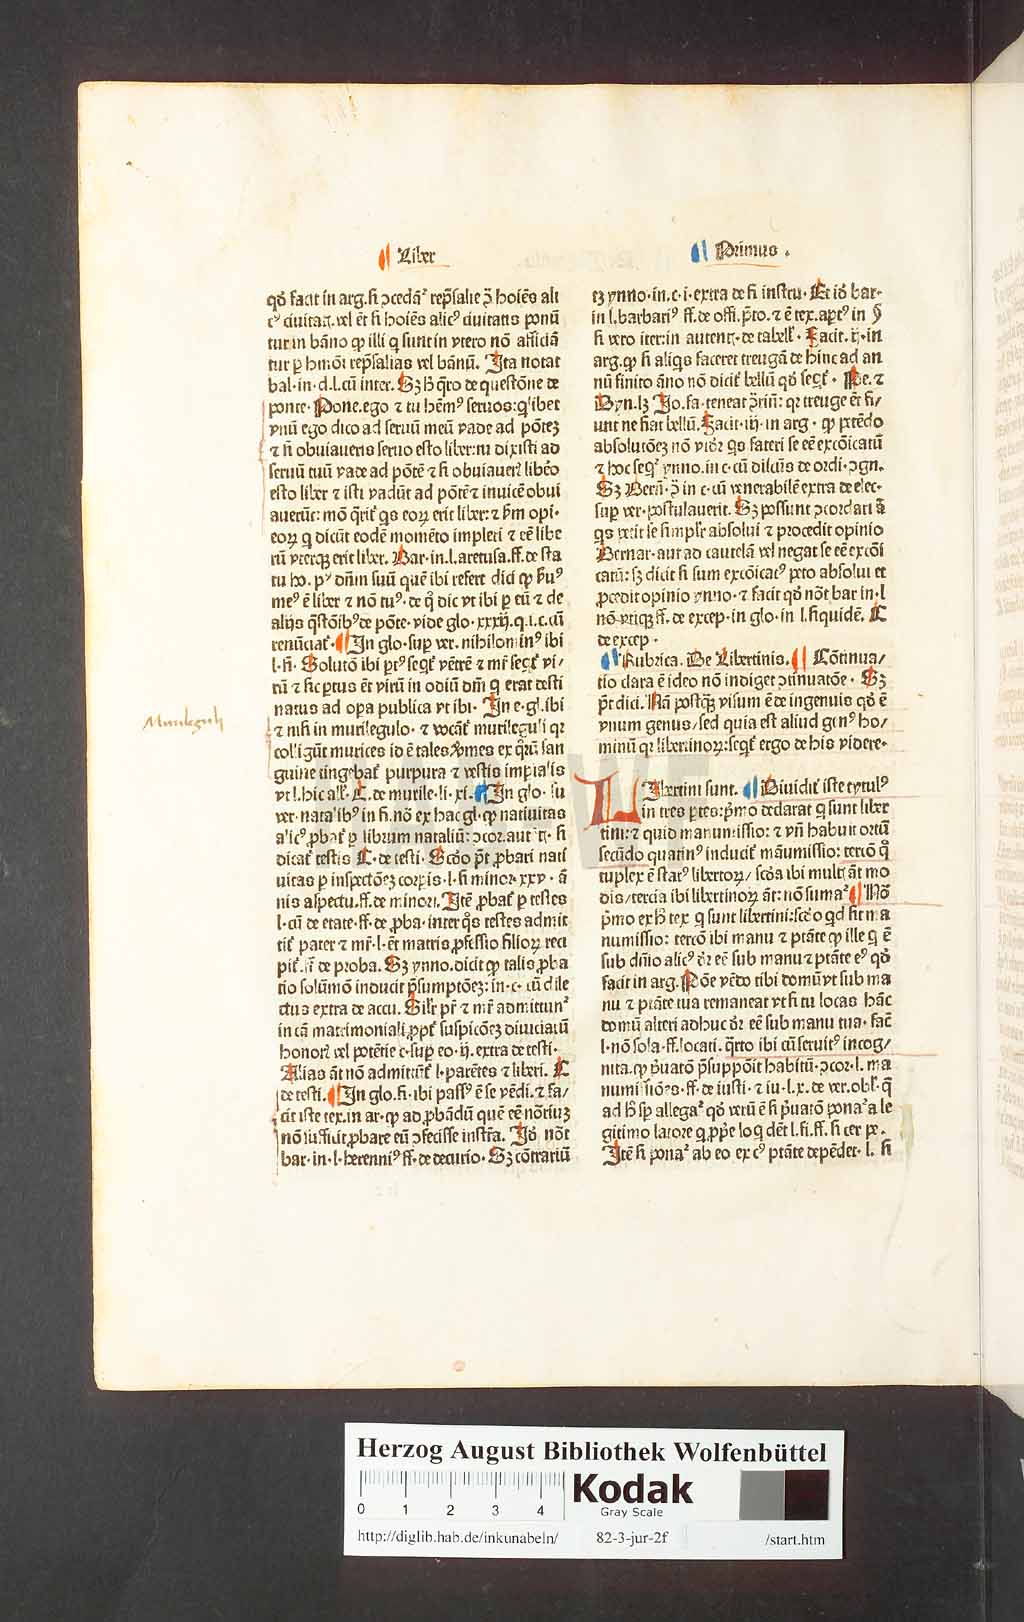 Liber
Primus .
qḋ facit in arg. si ꝓcedāt rep̄salie ꝯ̄ hoīes ali
cꝰ ciuitat. vel ēt si hoīes alicꝰ ciuitatis ponū
tur in bāno ꝙ illi q̇ sunt in vtero nō afficiā
tur ꝑ hmōi rep̄salias vel bānū. Ita notat
bal. in. d. l. cū inter. Sꝫ q̄ro de questōne de
ponte. Pone. ego ⁊ tu hēmꝰ seruos: qͥlibet
vnū ego dico ad seruū meū vade ad pōteꝫ
⁊ si obuiaueris seruo esto liber: tu dixisti ad
seruū tuū vade ad pōtē ⁊ si obuiaueris libeo
esto liber ⁊ isti vadūt ad pōtē ⁊ inuicē obui
auerūt: mō q̄rit qͥs eoꝝ erit liber: ⁊ pm opi.
eoꝝ q̇ dicūt eodē momēto impleri ⁊ eē libe
rū vterqꝫ erit liber. Bar. in. l. aretusa. ff. de sta
tu ho. dn̄m suū quē ibi refert dici ꝙ
meꝰ ē liber ⁊ nō tuꝰ. de q̇ dic vt ibi ꝑ eū ⁊ de
alijs q̄stōibꝰ de pōte. vide glo. xxxij. q. i. c. cū
renūciat. In glo. suꝑ ver. nihilominꝰ ibi
l. fi. Solutō ibi ptꝰ seqt vētrē ⁊ mr̄ seqt vi/
rū ⁊ sic ptus ēt virū in odiū dm̄ q̇ erat desti
natus ad opa publica vt ibi. In e. gl. ibi
⁊ nisi in murilegulo. ⁊ vocāt murileguli qr
colligūt murices id ē tales vmes ex quū san
guine tingebat purpura ⁊ vestis imꝑialis
vt l. hic all. C. de murile. li. xi. In glo. su
ver. natalibꝰ in fi. nō ex hac gl. ꝙ natiuitas
alicꝰ ꝓbat ꝑ librum nataliū: ꝯcor. aut si
dicat testis C. de testi. Scdo pt ꝓbari nati
uitas ꝑ inspectōeꝫ corpis. l. si minor. xxv. ā
nis aspectu. ff. de minori. Itē ꝓbat ꝑ testes
l. cū de etate. ff. de ꝓba. inter q̇s testes admit
tit pater ⁊ mr̄. l. ēt matris ꝓfessio filioꝝ reci
pit. ff de proba. Sꝫ ynno. dicit ꝙ talis ꝓba
tio solūmō inducit psumptōeꝫ: in. c. cū dile
ctus extra de accu. Silr pr̄ ⁊ mr̄ admittunt
in cā matrimoniali ꝓpt suspicōeꝫ diuiciaꝝ
honor vel potētie c. suꝑ eo. ij. extra de testi.
Alias āt nō admittūt l. parētes ⁊ liberi. C
de testi. In glo. fi. ibi passꝰ ē se vēdi. ⁊ fa/
cit iste tex. in ar. ꝙ ad ꝓbādū quē eē nōriuꝫ
nō sufficit ꝓbare eū ꝯfecisse instra. Iō nōt
bar. in. l. herenniꝰ ff. de decurio. Sꝫ cōtrariū
tꝫ ynno. in. c. i. extra de fi instru. Et iō bar.
in l. barbariꝰ ff. de offi. pto. ⁊ ē tex. aptꝰ in §
si vero iter: in autent. de tabell. Facit. ij. in
arg. ꝙ si aliqͥs faceret treugā de hinc ad an
nū finito āno nō dicit bellū qḋ seqt. Pe. ⁊
Dyn. lꝫ Io. fa. teneat ꝯriū: qꝛ treuge ēt fi/
unt ne fiat bellū. Facit. iij. in arg. ꝙ petēdo
absolutōeꝫ nō vidr̄ qͥs fateri se eē excōicatū
⁊ hoc seqt ynno. in c. cū dilcūs de ordi. ꝯgn.
Sꝫ Bern. ꝯ̄ in c. cū venerabilē extra de elec.
suꝑ ver. postulauerit. Sꝫ possunt ꝯcordari
qͥs petit se simplr absolui ⁊ procedit opinio
Bernar. aut ad cautelā vel negat se eē excōi
catū: sꝫ dicit si sum excōicatꝰ peto absolui et
ꝓcedit opinio ynno. ⁊ facit qḋ nōt bar in. l
nō vtiqꝫ ff. de excep. in glo. in l. siquidē. C
de excep.
Rubrica. De Libertinis. Cōtinua/
tio clara ē ideo nō indiget ꝯtinuatōe. Sꝫ
pt dici. Nā postqꝫ visum ē de ingenuis qḋ ē
vnum genus/ sed quia est aliud genꝰ ho/
minū qꝛ libertinoꝝ: seqt ergo de his videre.
LIbertini sunt. Diuidit iste tytulꝰ
in tres ptes: pmo declarat q̇ sunt liber
tini: ⁊ quid manumissio: ⁊ vn̄ habuit ortū
secūdo quatinꝰ inducit māumissio: tercō q̇
tuplex ē statꝰ libertoꝝ/ scda ibi mult āt mo
dis/ tercia ibi libertinoꝝ āt: nō suma Nō
pmo ex h tex. q̇ sunt libertini: scdo qd sit ma
numissio: tercō ibi manu ⁊ ptāte ꝙ ille q̇ ē
sub dnio alicꝰ dr̄ eē sub manu ⁊ ptāte eꝰ qḋ
facit in arg. Pōe vēdo tibi domū vt sub ma
nu ⁊ ptāte tua remaneat vt si tu locas hāc
domū alteri adhuc dr̄ eē sub manu tua. fac
l. nō sola. ff. locati. q̄rto ibi cū seruitꝰ incog/
nita. ꝙ puatō psuppōit habitū. ꝯcor. l. ma
numissiōes. ff. de iusti. ⁊ iu. l. x. de ver. obl. q̄
ad h sp allegat qḋ verū ē si puatō ponat a le
gitimo latore q̇ ꝓpe loq dēt l. si. ff. si cer pe.
Itē si ponat ab eo ex cꝰ ptāte depēdet. l. si
Herzog August Bibliothek Wolfenbüttel
0 1 2 3 4
Kodak
Gray Scale
http://diglib.hab.de/inkunabeln/ 82-3-jur-2f /start.htm